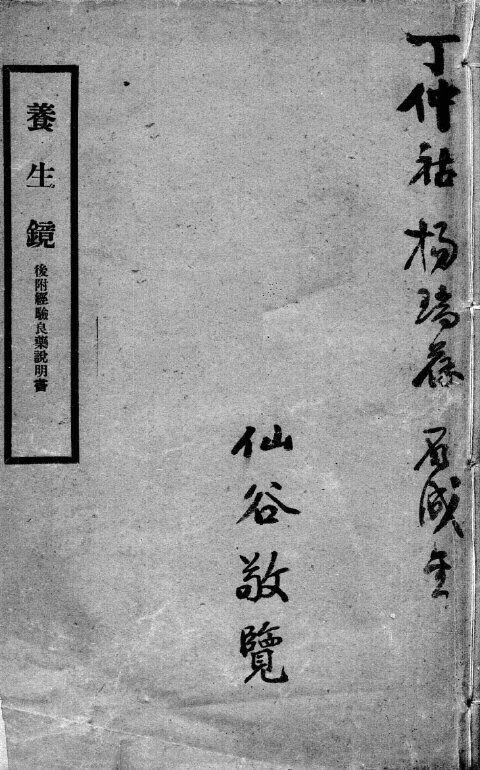 丁仲祜 楊瑞葆
仙谷敬覽
養生鏡
後附經驗良藥說明書